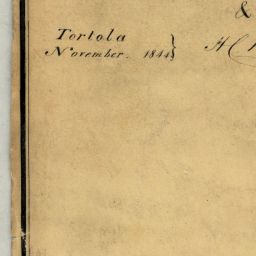 &
Tortola
November. 1844
H C